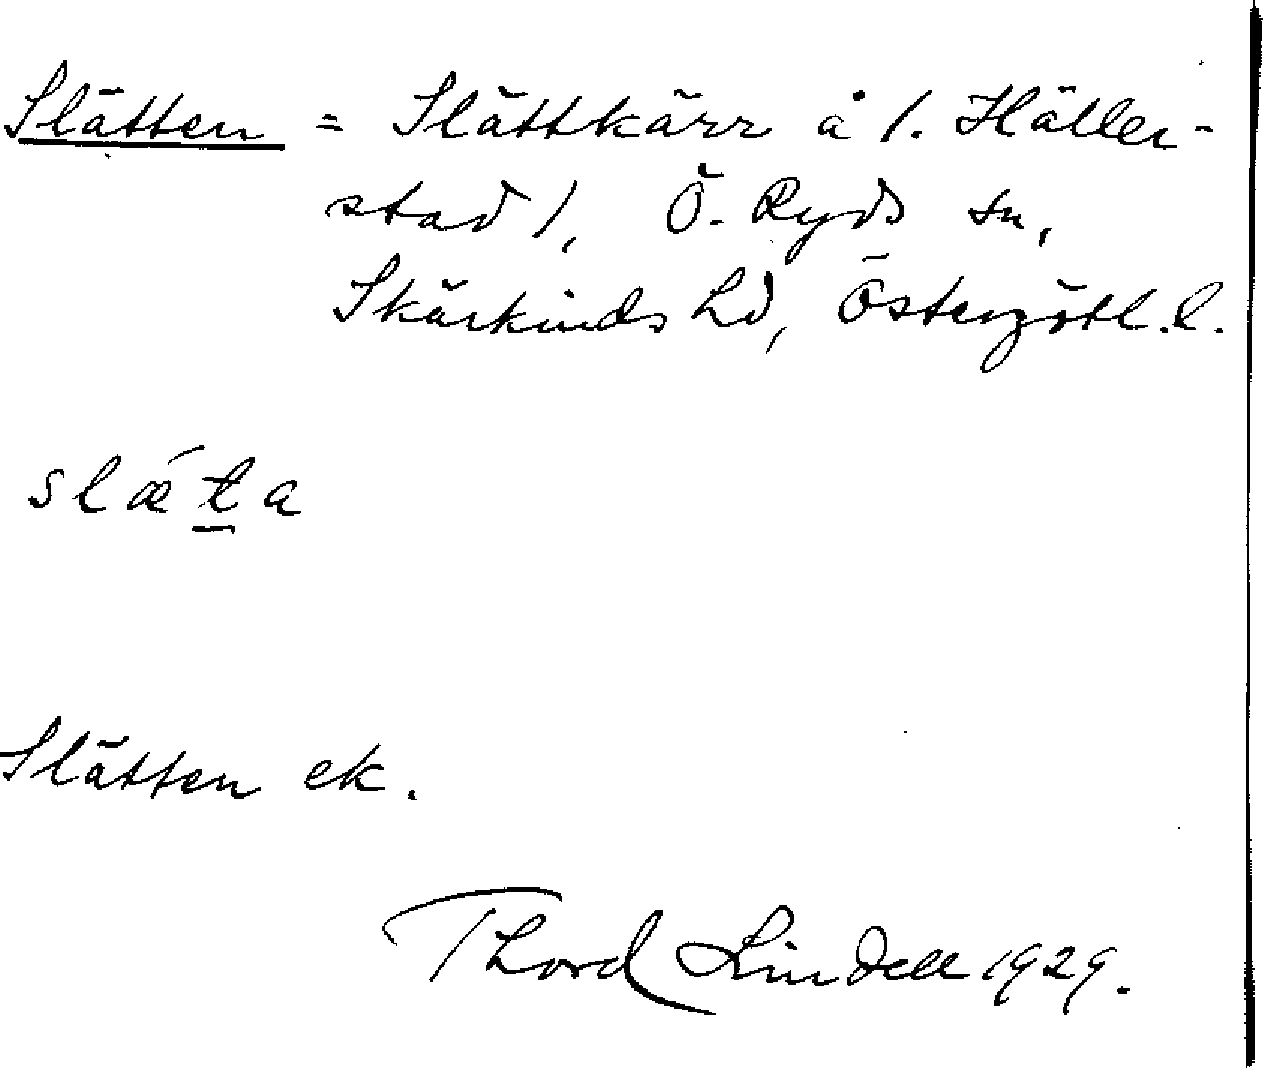 Slätten = Slättkärr å 1. Häller-
stad 1, Ö. Ryds sn,
Skärkinds hd, Östergötl. l.
slǽta
Slätten ek.
Thord Lindell 1929.